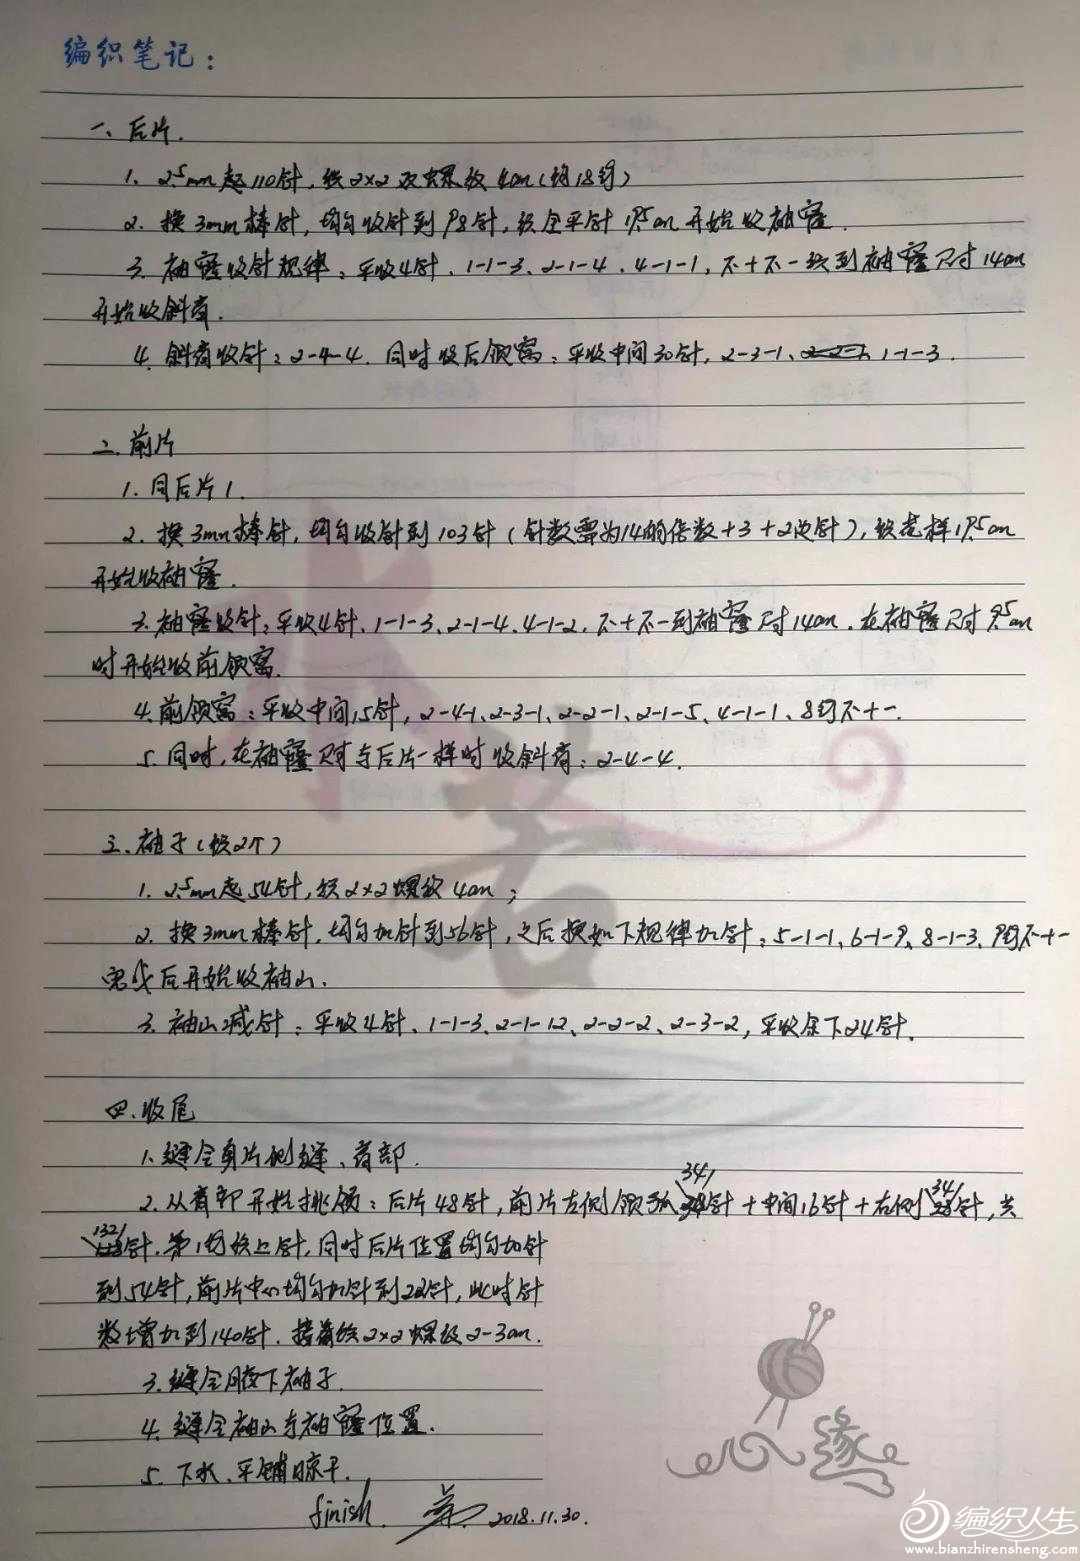 编织笔记:
一、后片.
1. 2.5mm起110针,织2×2双螺纹4cm(约18行)
2. 换3mm棒针,均匀收针到98针,织全平针19.5cm开始收袖窿.
3. 袖窿收针规律:平收4针、1-1-3、2-1-4、4-1-1,不+不-织到袖窿尺寸14cm
开始收斜肩.
4. 斜肩收针:2-4-4. 同时收后领窝:平收中间30针,2-3-1、1-1-3.
二.前片
1. 同后片1.
2. 换3mm棒针,均匀收针到103针(针数需为14的倍数+3+2边针),织花样19.5cm
开始收袖窿.
3. 袖窿收针:平收4针、1-1-3、2-1-4、4-1-2,不+不-到袖窿尺寸14cm.在袖窿尺寸9.5cm
时开始收前领窝.
4. 前领窝:平收中间15针,2-4-1、2-3-1、2-2-1、2-1-5、4-1-1、8行不+-.
5. 同时,在袖窿尺寸与后片一样时收斜肩:2-4-4.
三.袖子(织2个)
1. 2.5mm起54针,织2×2螺纹4cm;
2. 换3mm棒针,均匀加针到56针,之后换如下规律加针:5-1-1、6-1-9、8-1-3、9行不+-
完成后开始收袖山.
3. 袖山减针:平收4针、1-1-3、2-1-12、2-2-2、2-3-2,平收余下24针.
四.收尾
1. 缝合身片侧缝、肩部.
2. 从肩部开始挑领:后片48针,前片左侧领弧34针+中间16针+右侧34针,共
132针.第1行织上针,同时后片位置均匀加针
到54针,前片中心均匀加针到22针,此时针
数增加到140针.接着织2×2螺纹2-3cm.
3. 缝合腋下袖子.
4. 缝合袖山与袖窿位置.
5. 下水、平铺晾干.
finish. 2018.11.30.
心缘
编织人生
www.bianzhirensheng.com